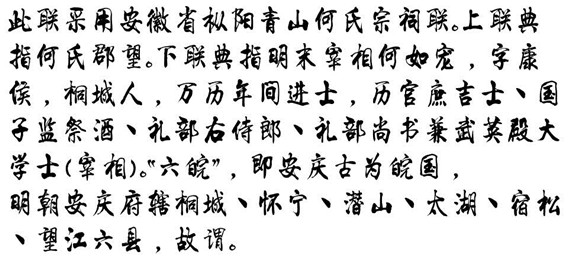 此联采用安徽省枞阳青山何氏宗祠联。上联典
指何氏郡望。下联典指明末宰相何如宠，字康
侯，桐城人，万历年间进士，历官庶吉士、国
子监祭酒、礼部右侍郎、礼部尚书兼武英殿大
学士(宰相)。“六皖”，即安庆古为皖国，
明朝安庆府辖桐城、怀宁、潜山、太湖、宿松
、望江六县，故谓。